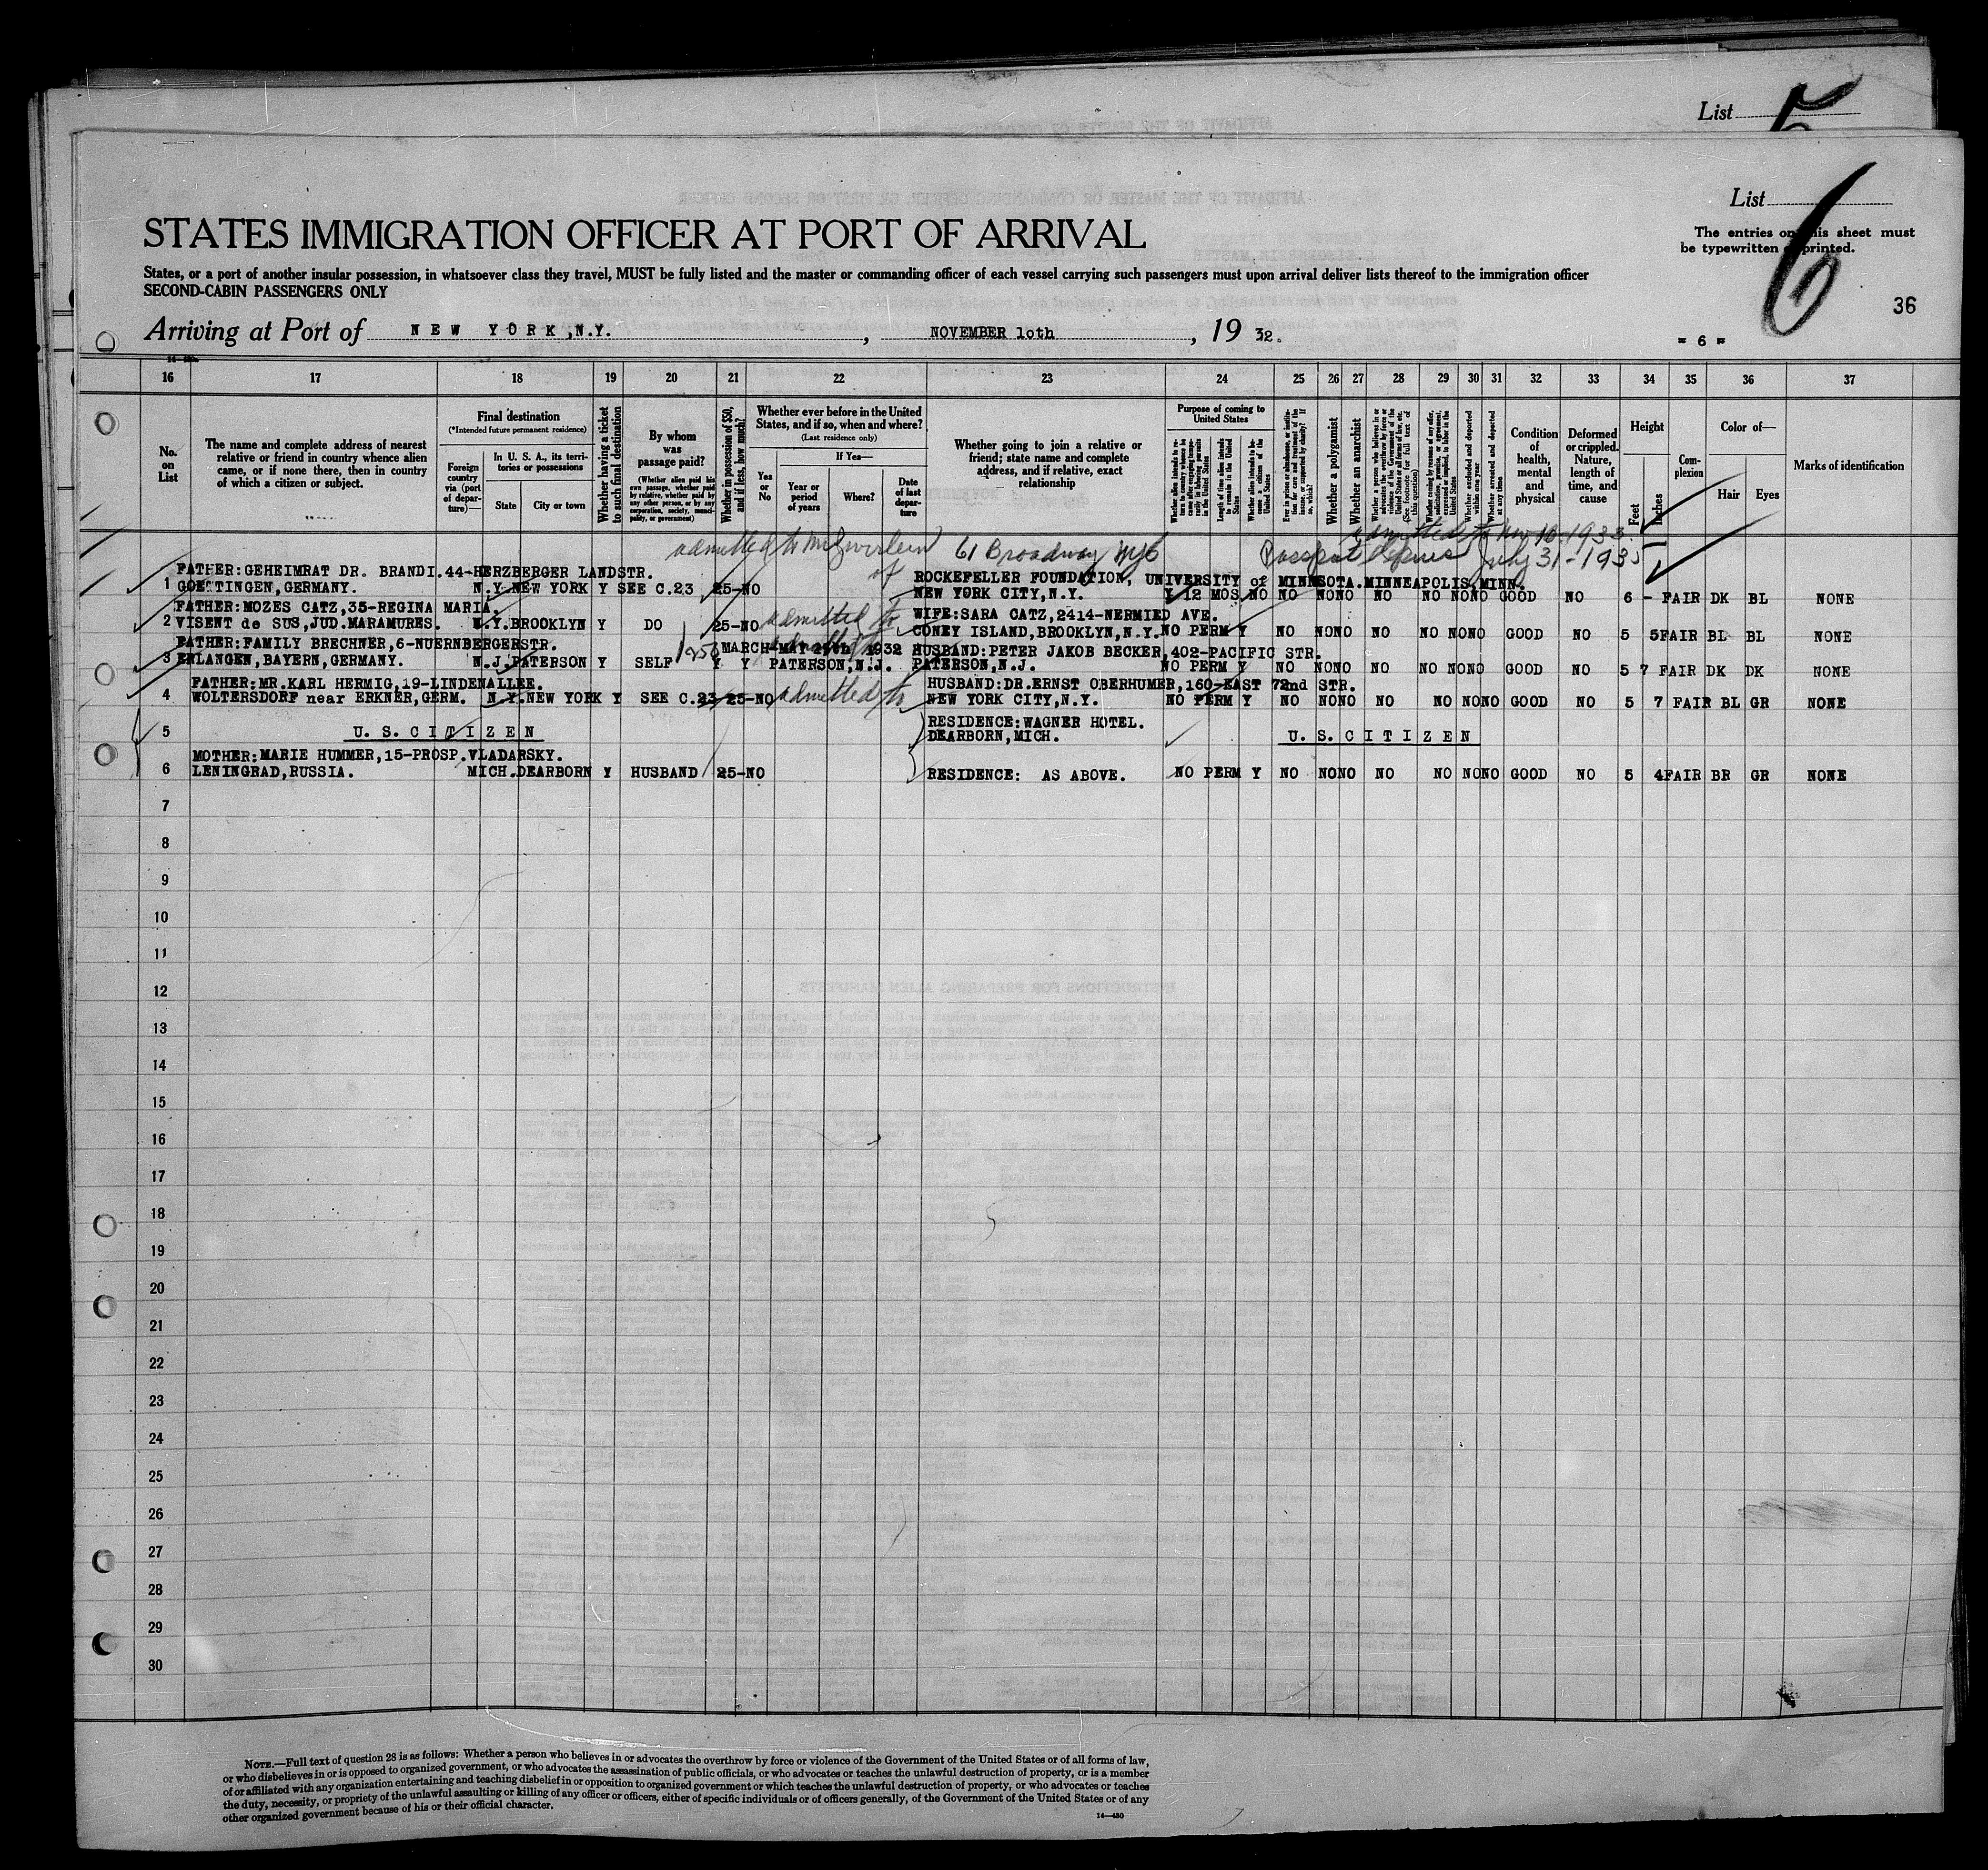 List 5
List 6
STATES IMMIGRATION OFFICER AT PORT OF ARRIVAL
The entries on this sheet must
be typewritten or printed.
States, or a port of another insular possession, in whatsoever class they travel, MUST be fully listed and the master or commanding officer of each vessel carrying such passengers must upon arrival deliver lists thereof to the immigration officer
SECOND-CABIN PASSENGERS ONLY
36
Arriving at Port of NEW YORK, N.Y. , NOVEMBER 10th , 19 32.
= 6 =
16 17 18 19 20 21 22 23 24 25 26 27 28 29 30 31 32 33 34 35 36 37
No. on List
The name and complete address of nearest relative or friend in country whence alien came, or if none there, then in country of which a citizen or subject.
Final destination
(*Intended future permanent residence)
Foreign country via (port of departure)—
In U. S. A., its territories or possessions
State
City or town
Whether having a ticket to such final destination
By whom was passage paid?
(Whether alien paid his own passage, whether paid by relative, whether paid by any other person, or by any corporation, society, municipality, or government)
Whether in possession of $50, and if less, how much?
Whether ever before in the United States, and if so, when and where?
(Last residence only)
Yes or No
If Yes—
Year or period of years
Where?
Date of last departure
Whether going to join a relative or friend; state name and complete address, and if relative, exact relationship
Purpose of coming to United States
Length of time alien intends to remain in the United States
Whether alien intends to become a citizen of the United States
Whether a polygamist
Whether an anarchist
Whether excluded and deported within one year
Whether arrested and deported at any time
Condition of health, mental and physical
Deformed or crippled. Nature, length of time, and cause
Height
Feet
Inches
Complexion
Color of—
Hair
Eyes
Marks of identification
admitted to
61 Broadway NYC
admitted to Nov 10-1933.
of
Passport Expires July 31-1935
FATHER:GEHEIMRAT DR. BRANDI.44-HERZBERGER LANDSTR. ROCKEFELLER FOUNDATION, UNIVERSITY of MINNESOTA.MINNEAPOLIS,MINN.
1 GOETTINGEN,GERMANY. N.Y. NEW YORK Y SEE C.23 25-NO NEW YORK CITY,N.Y. Y 12 MOS. NO NO NONO NO NO NONO GOOD NO 6 - FAIR DK BL NONE
FATHER:MOZES CATZ,35-REGINA MARIA. WIFE:SARA CATZ,2414-NERMIED AVE.
2 VISENT de SUS,JUD.MARAMURES. N.Y. BROOKLYN Y DO 25-NO admitted to CONEY ISLAND,BROOKLYN,N.Y. NO PERM Y NO NONO NO NO NONO GOOD NO 5 5 FAIR BL BL NONE
FATHER:FAMILY BRECHNER,6-NUERNBERGERSTR. MARCH-MAY 1932 HUSBAND:PETER JAKOB BECKER,402-PACIFIC STR.
3 ERLANGEN,BAYERN,GERMANY. N.J. PATERSON Y SELF Y Y PATERSON,N.J. PATERSON,N.J. NO PERM Y NO NONO NO NO NONO GOOD NO 5 7 FAIR DK DK NONE
FATHER:MR.KARL HERMIG,19-LINDENALLEE. HUSBAND:DR.ERNST OBERHUMER,160-EAST 72nd STR.
4 WOLTERSDORF near ERKNER,GERM. N.Y. NEW YORK Y SEE C.23 25-NO admitted to NEW YORK CITY,N.Y. NO PERM Y NO NONO NO NO NONO GOOD NO 5 7 FAIR BL GR NONE
RESIDENCE:WAGNER HOTEL.
5 U.S.CITIZEN DEARBORN,MICH. U.S.CITIZEN
MOTHER:MARIE HUMMER,15-PROSP.VLADARSKY.
6 LENINGRAD,RUSSIA. MICH. DEARBORN Y HUSBAND 25-NO RESIDENCE: AS ABOVE. NO PERM Y NO NONO NO NO NONO GOOD NO 5 4 FAIR BR GR NONE
7
8
9
10
11
12
13
14
15
16
17
18
19
20
21
22
23
24
25
26
27
28
29
30
NOTE.—Full text of question 28 is as follows: Whether a person who believes in or advocates the overthrow by force or violence of the Government of the United States or of all forms of law,
or who disbelieves in or is opposed to organized government, or who advocates the assassination of public officials, or who advocates or teaches the unlawful destruction of property, or is a member
of or affiliated with any organization entertaining and teaching disbelief in or opposition to organized government or which teaches the unlawful destruction of property, or who advocates or teaches
the duty, necessity, or propriety of the unlawful assaulting or killing of any officer or officers, either of specific individuals or of officers generally, of the Government of the United States or of any
other organized government because of his or their official character.
14—430